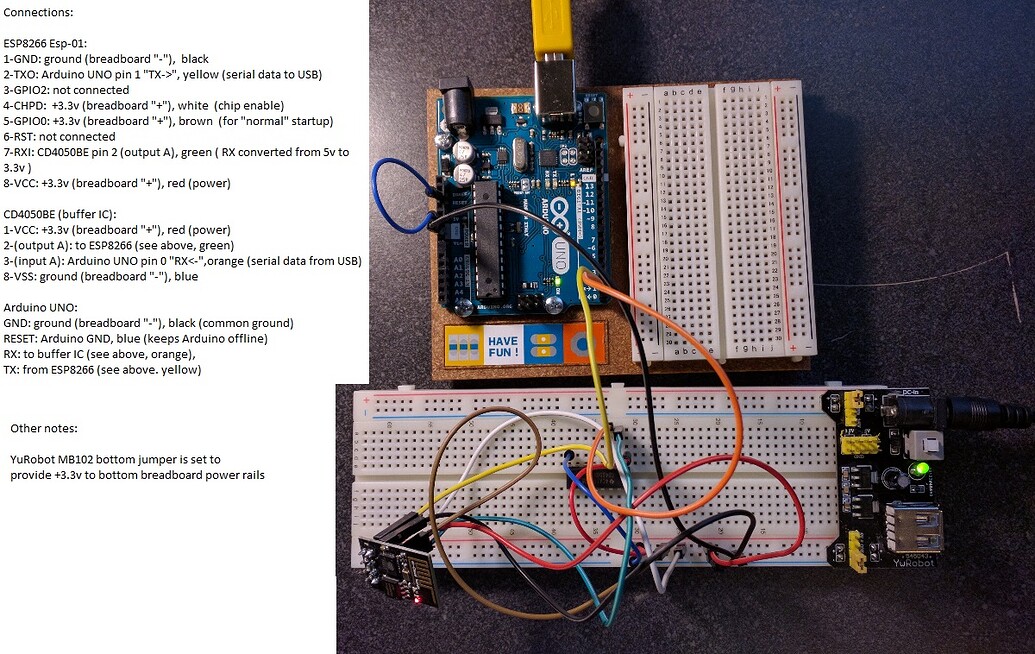 Connections:
ESP8266 Esp-01:
1-GND: ground (breadboard "-"), black
2-TXO: Arduino UNO pin 1 "TX->", yellow (serial data to USB)
3-GPIO2: not connected
4-CHPD: +3.3v (breadboard "+"), white (chip enable)
5-GPIO0: +3.3v (breadboard "+"), brown (for "normal" startup)
6-RST: not connected
7-RXI: CD4050BE pin 2 (output A), green ( RX converted from 5v to
3.3v )
8-VCC: +3.3v (breadboard "+"), red (power)
CD4050BE (buffer IC):
1-VCC: +3.3v (breadboard "+"), red (power)
2-(output A): to ESP8266 (see above, green)
3-(input A): Arduino UNO pin 0 "RX<-",orange (serial data from USB)
8-VSS: ground (breadboard "-"), blue
Arduino UNO:
GND: ground (breadboard "-"), black (common ground)
RESET: Arduino GND, blue (keeps Arduino offline)
RX: to buffer IC (see above, orange),
TX: from ESP8266 (see above. yellow)
Other notes:
YuRobot MB102 bottom jumper is set to
provide +3.3v to bottom breadboard power rails
a b c d e
f g h i j
AREF
13
12
ARDUINO
UNO
HAVE
FUN !
a b c d e
f g h i j
DC-in
YuRobot